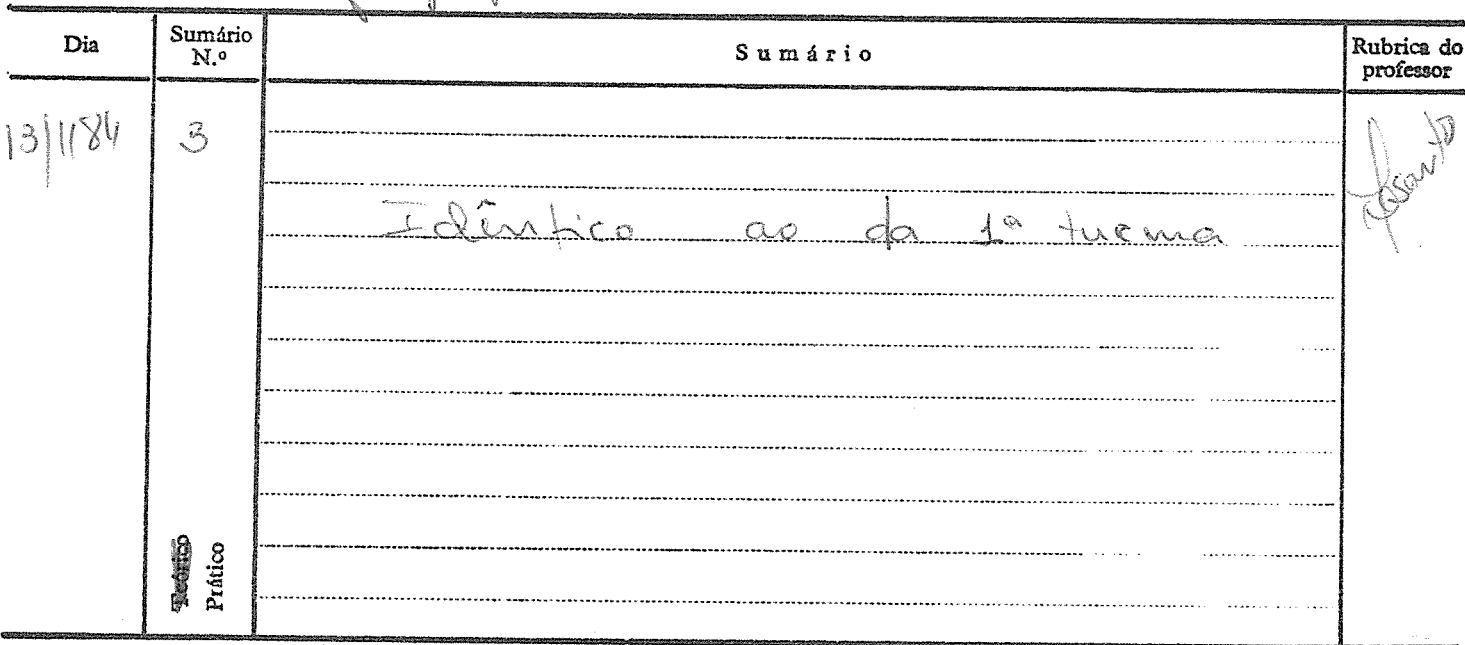 Dia
Sumário
N.º
Sumário
Rubrica do
professor
13/1/84
3
Idêntico ao da 1ª turma
Teórico
Prático